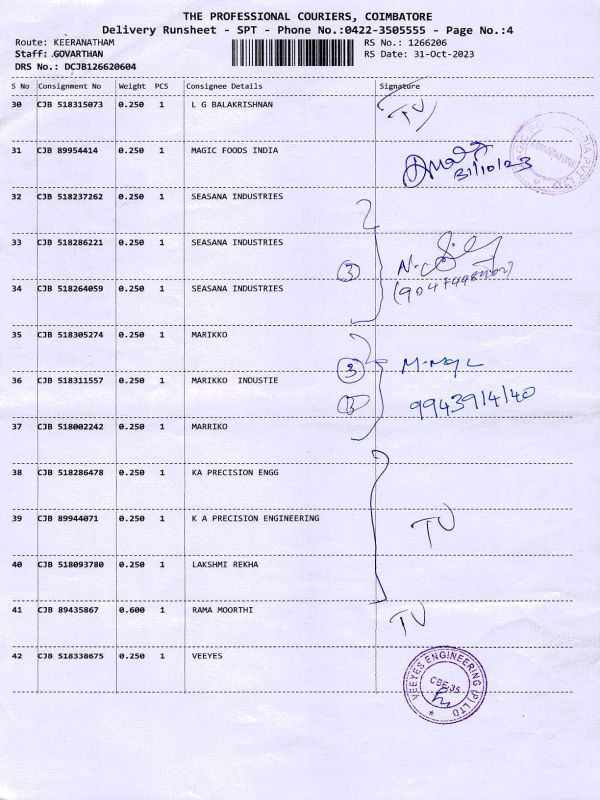 THE PROFESSIONAL COURIERS, COIMBATORE
Delivery Runsheet - SPT - Phone No.:0422-3505555 - Page No.:4
Route: KEERANATHAM RS No.: 1266206
Staff: GOVARTHAN RS Date: 31-Oct-2023
DRS No.: DCJB126620604
S No Consignment No Weight PCS Consignee Details Signature
30 CJB 518315073 0.250 1 L G BALAKRISHNAN TV
31 CJB 89954414 0.250 1 MAGIC FOODS INDIA 31/10/23
COIMBATORE
32 CJB 518237262 0.250 1 SEASANA INDUSTRIES
33 CJB 518286221 0.250 1 SEASANA INDUSTRIES 3
34 CJB 518264059 0.250 1 SEASANA INDUSTRIES
35 CJB 518305274 0.250 1 MARIKKO
36 CJB 518311557 0.250 1 MARIKKO INDUSTIE 3
9943914140
37 CJB 518002242 0.250 1 MARRIKO
38 CJB 518286478 0.250 1 KA PRECISION ENGG
39 CJB 89944071 0.250 1 K A PRECISION ENGINEERING TV
40 CJB 518093780 0.250 1 LAKSHMI REKHA
41 CJB 89435867 0.600 1 RAMA MOORTHI TV
42 CJB 518338675 0.250 1 VEEYES
VEEYES ENGINEERING (P) LTD
CBE-35